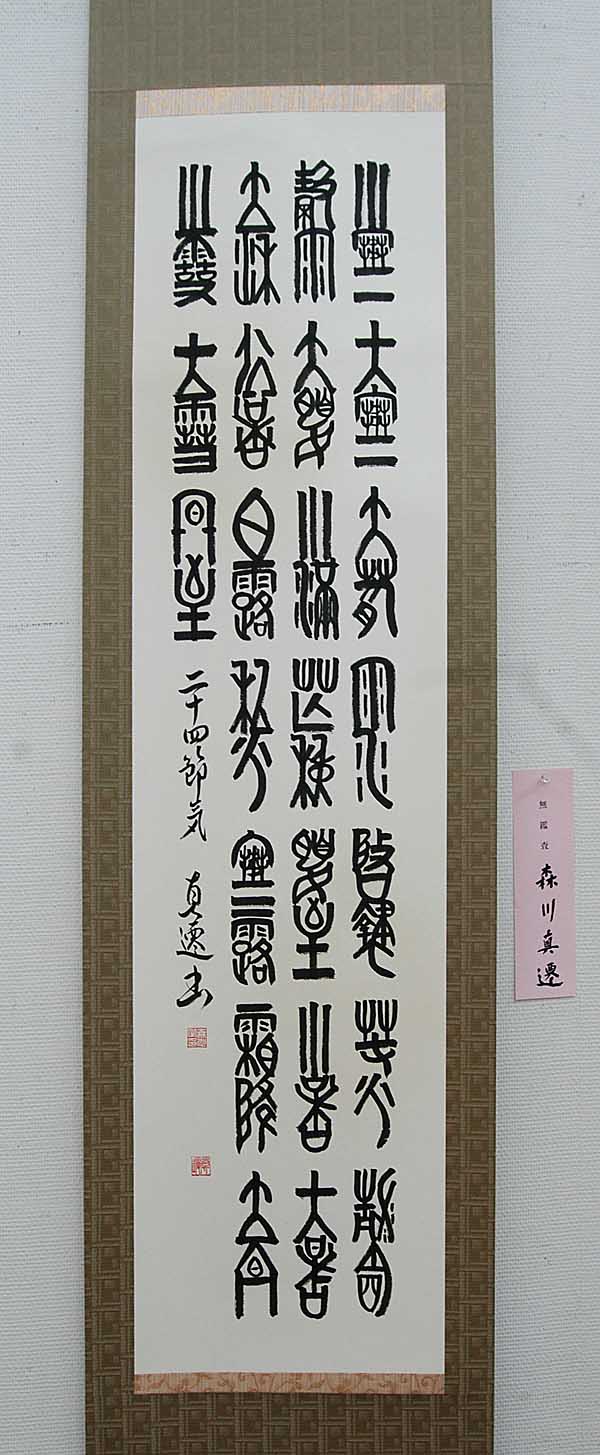 小寒大寒立春雨水啓蟄春分清明
穀雨立夏小満芒種夏至小暑大暑
立秋処暑白露秋分寒露霜降立冬
小雪大雪冬至 二十四節気 真遷書
無鑑査
森川真遷